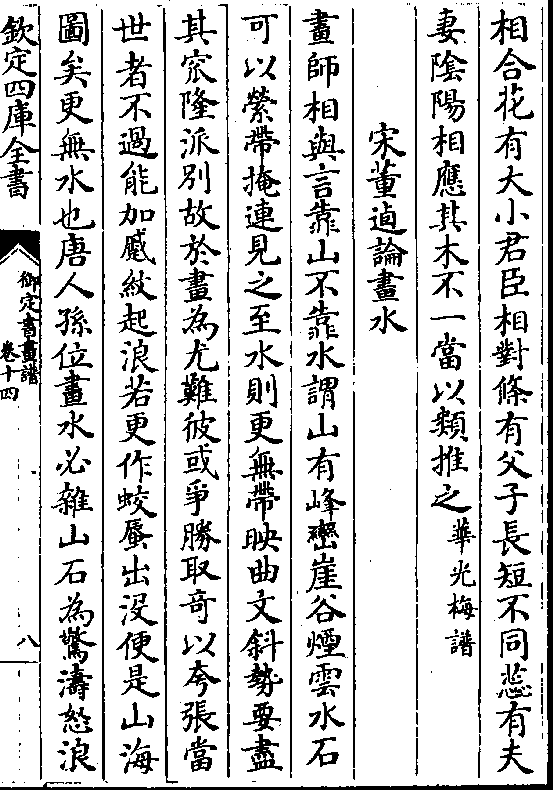 相合花有大小君臣相對條有父子長短不同蕊有夫
妻陰陽相應其木不一當以類推之華光梅譜
宋董逌論畫水
畫師相與言靠山不靠水謂山有峰巒崖谷煙雲水石
可以縈帶掩連見之至水則更無帶映曲文斜勢要盡
其窊隆派別故於畫為尤難彼或爭勝取奇以夸張當
世者不過能加蹙紋起浪若更作蛟蜃出没便是山海
圖矣更無水也唐人孫位畫水必雜山石為驚濤怒浪
欽定四庫全書
御定書畫譜
卷十四
八